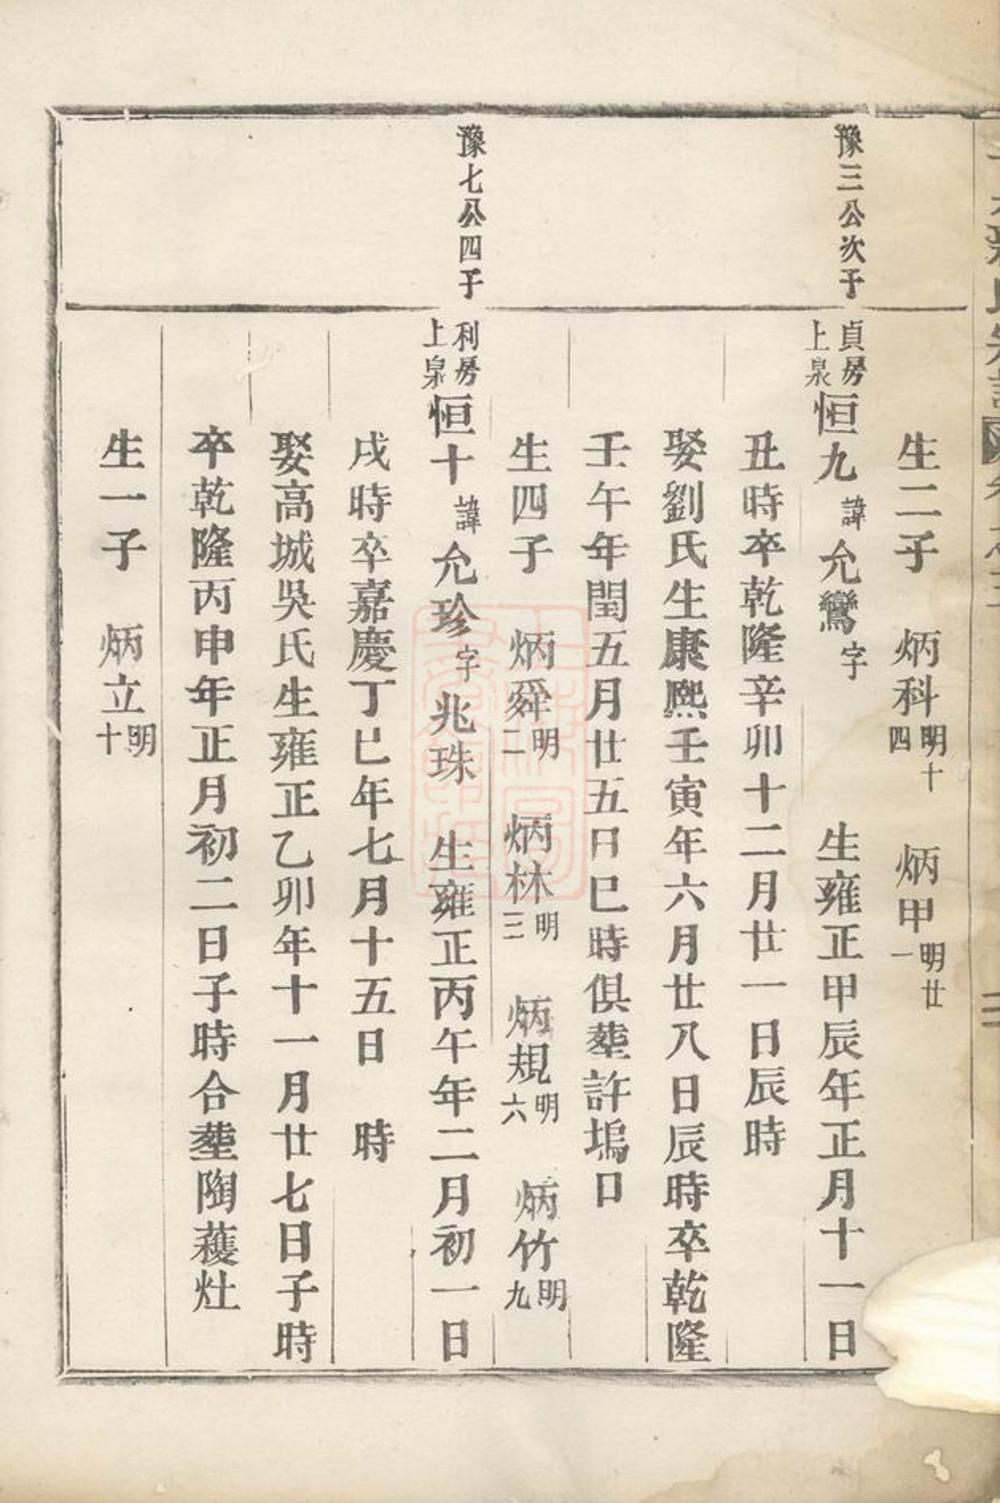 生二子 炳科明十四 炳甲明廿一
豫三公次子
貞房上泉恒九諱允鸞字 生雍正甲辰年正月十一日
丑時卒乾隆辛卯十二月廿一日辰時
娶劉氏生康熙壬寅年六月廿八日辰時卒乾隆
壬午年閏五月廿五日巳時俱塟許塢口
生四子 炳舜明二 炳林明三 炳規明六 炳竹明九
豫七公四子
利房上泉恒十諱允珍字兆珠 生雍正丙午年二月初一日
戌時卒嘉慶丁巳年七月十五日 時
娶高城吳氏生雍正乙卯年十一月廿七日子時
卒乾隆丙申年正月初二日子時合塟陶䕶灶
生一子 炳立明十